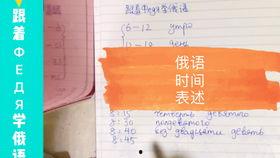 跟着ФЕДЯ学俄语
跟着Федя学俄语
6-12 утро
12-18 день
俄语
时间
表述
8:15 четверть девятого
8:30 полдевятого
8:40 без двадцати девять
8:45